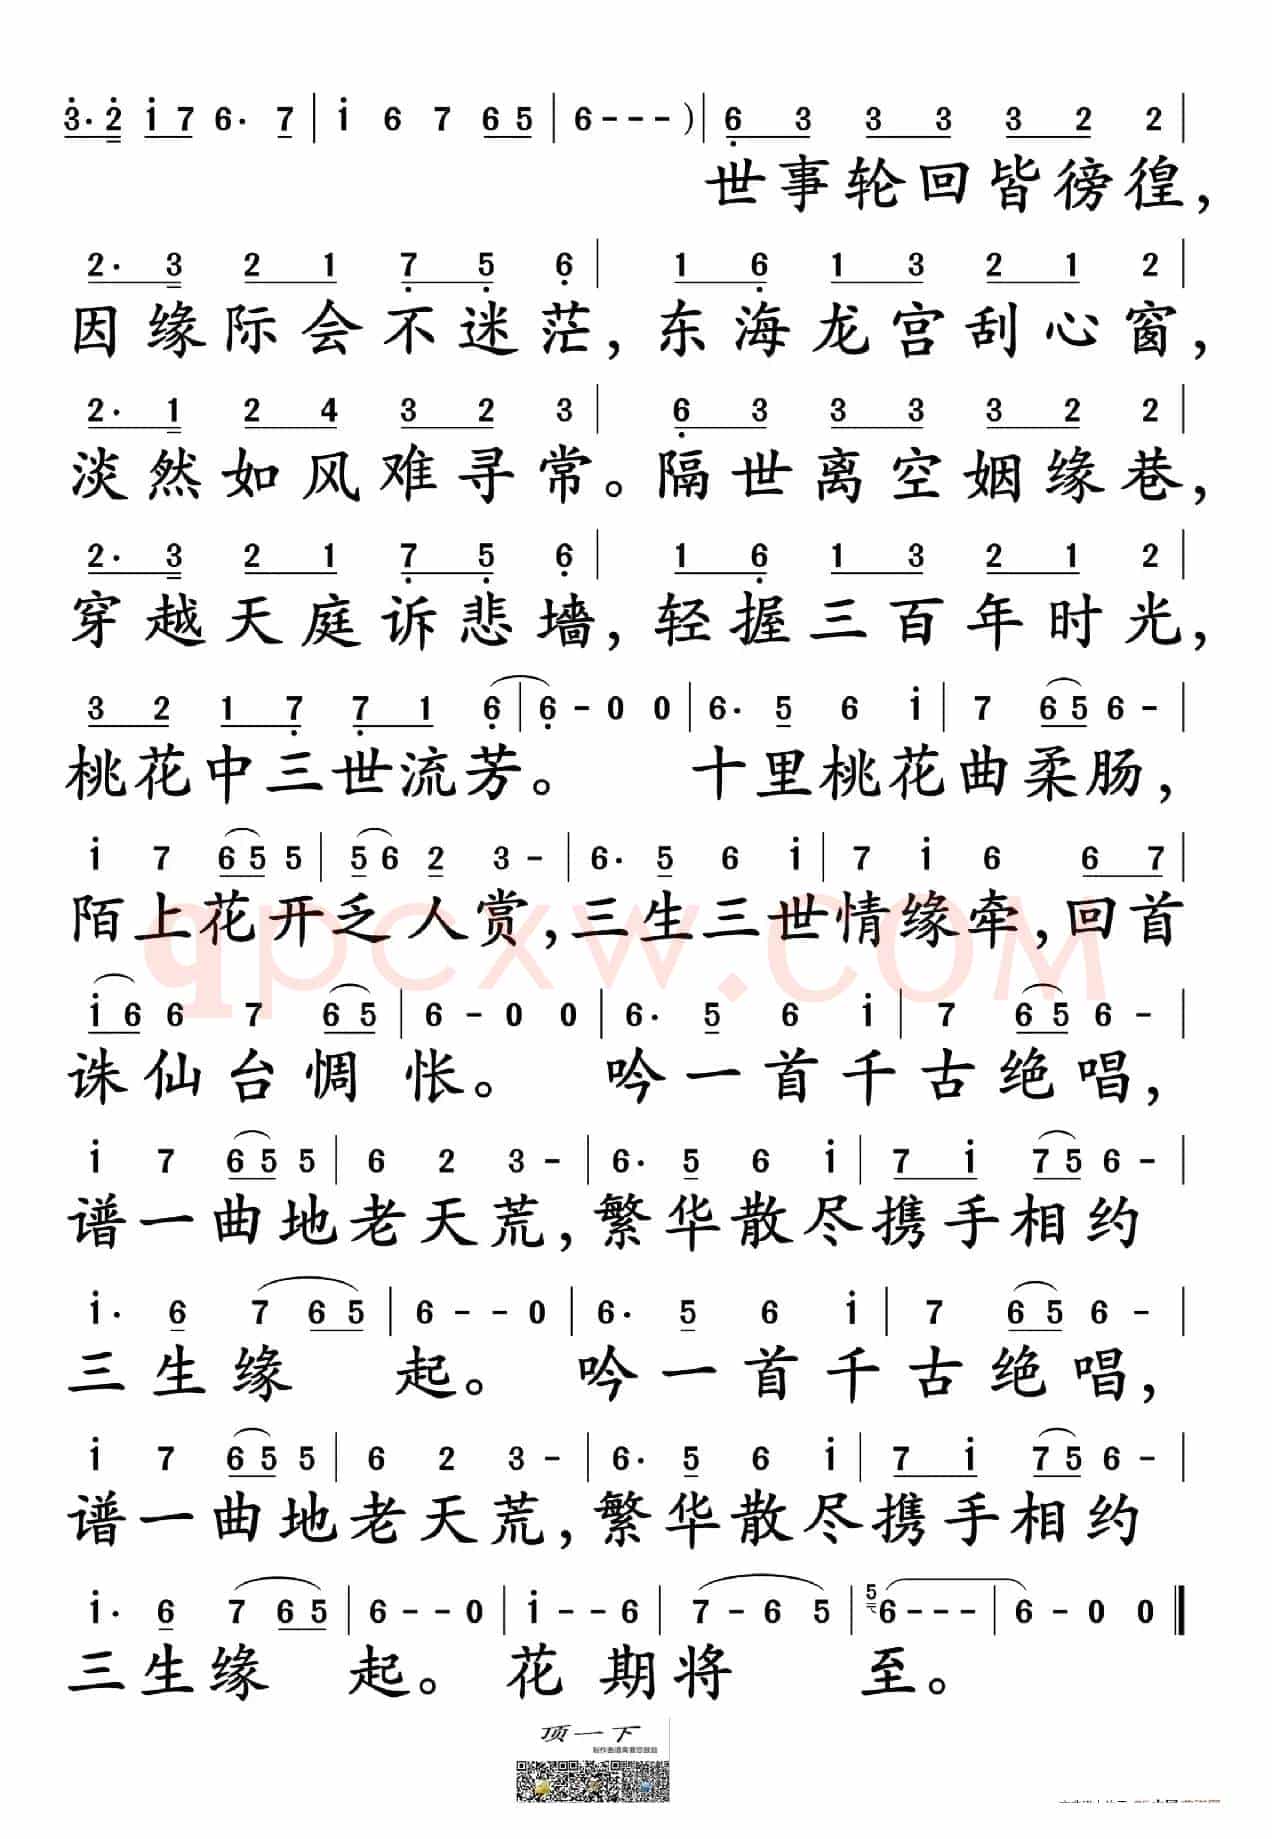 3· 2 1 7 6· 7 | 1 6 7 6 5 | 6 - - - ) | 6 3 3 3 3 2 2 |
世事轮回皆徬徨,
2· 3 2 1 7 5 6 | 1 6 1 3 2 1 2 |
因缘际会不迷茫,东海龙宫刮心窗,
2· 1 2 4 3 2 3 | 6 3 3 3 3 2 2 |
淡然如风难寻常。隔世离空姻缘巷,
2· 3 2 1 7 5 6 | 1 6 1 3 2 1 2 |
穿越天庭诉悲墙,轻握三百年时光,
3 2 1 7 7 1 6 | 6 - 0 0 | 6· 5 6 1 | 7 6 5 6 - |
桃花中三世流芳。 十里桃花曲柔肠,
1 7 6 5 5 | 5 6 2 3 - | 6· 5 6 1 | 7 1 6 6 7 |
陌上花开乏人赏,三生三世情缘牵,回首
qpcxw.COM
1 6 6 7 6 5 | 6 - 0 0 | 6· 5 6 1 | 7 6 5 6 - |
诛仙台惆怅。 吟一首千古绝唱,
1 7 6 5 5 | 6 2 3 - | 6· 5 6 1 | 7 1 7 5 6 - |
谱一曲地老天荒,繁华散尽携手相约
1· 6 7 6 5 | 6 - - 0 | 6· 5 6 1 | 7 6 5 6 - |
三生缘 起。 吟一首千古绝唱,
1 7 6 5 5 | 6 2 3 - | 6· 5 6 1 | 7 1 7 5 6 - |
谱一曲地老天荒,繁华散尽携手相约
1· 6 7 6 5 | 6 - - 0 | 1 - - 6 | 7 - 6 5 | 5 6 - - - | 6 - 0 0 ‖
三生缘 起。 花期将 至。
顶一下